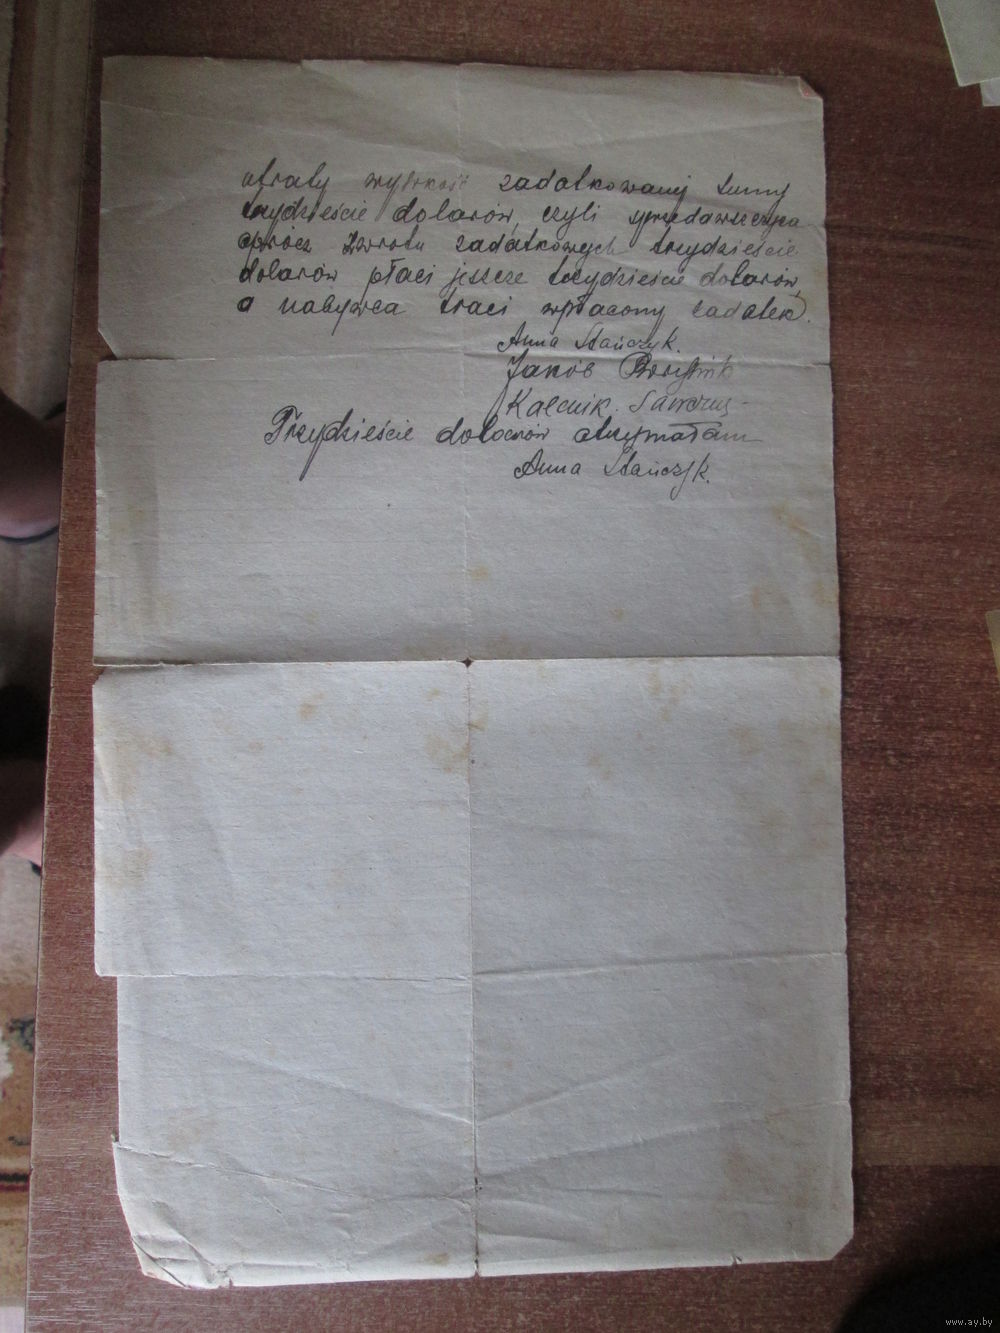 utraty wysokość zadatkowanej sumy
trzydzieście dolarów, czyli sprzedawczyna
oprócz zwrotu zadatkowych trzydzieście
dolarów płaci jeszcze trzydzieście dolarów,
a nabywca traci wpłacony zadatek.
Anna Stańczyk.
Jakób
Trzydzieście dolarów otrzymałam
Anna Stańczyk.
www.ay.by